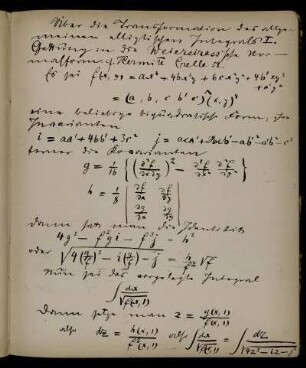 Über die Transformation des allge-
meinen elliptischen Integrals I.
Gattung in die Weierstrass'sche Nor-
malform. (Hermite Crelle 52.
Es sei f(x, y) = ax⁴ + 4bx³y + 6cx²y² + 4b'xy³
+ a'y⁴
= (a, b, c, b', a')(x, y)⁴
eine beliebige biquadratische Form, ihre
Invarianten
i = aa' - 4bb' + 3c² j = aca' + 2bcb' - ab'² - a'b² - c³
ferner die Kovarianten
g = 1/16 {(∂²f/∂x∂y)² - ∂²f/∂x² ∂²f/∂y²}
h = 1/8 | ∂f/∂x ∂f/∂y |
| ∂g/∂x ∂g/∂y |
Dann hat man die Identität
4g³ - f²gi - f³j = h²
oder √(4(g/f)³ - i(g/f) - j) = h/f² √f
Nun sei das vorgelegte Integral
∫ dx/√f(x, 1)
Dann setze man z = g(x, 1)/f(x, 1)
also dz = h(x, 1)/f²(x, 1) also ∫ dx/√f(x, 1) = ∫ dz/√4z³ - iz - j